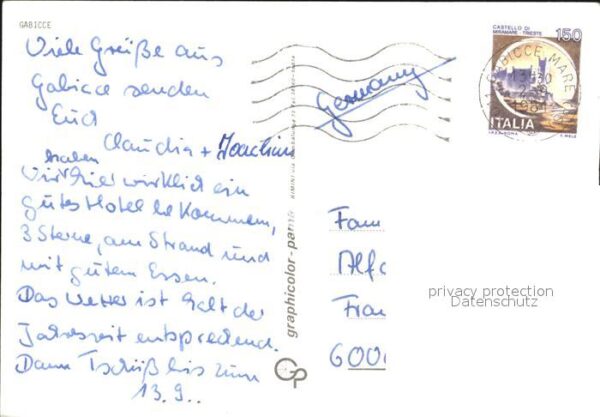 GABICCE
Viele Grüße aus
Gabicce senden
Euch
Claudia + Joachim
haben
Wir hier wirklich ein
gutes Hotel bekommen,
3 Sterne, am Strand und
mit gutem Essen.
Das Wetter ist halt der
Jahreszeit entsprechend.
Dann Tschüß bis zum
13.9..
graphicolor-parma
GP
Germany
CASTELLO DI
MIRAMARE - TRIESTE
150
ITALIA
GABICCE MARE
13-30
Fam
Alfo
Fran
600
privacy protection
Datenschutz